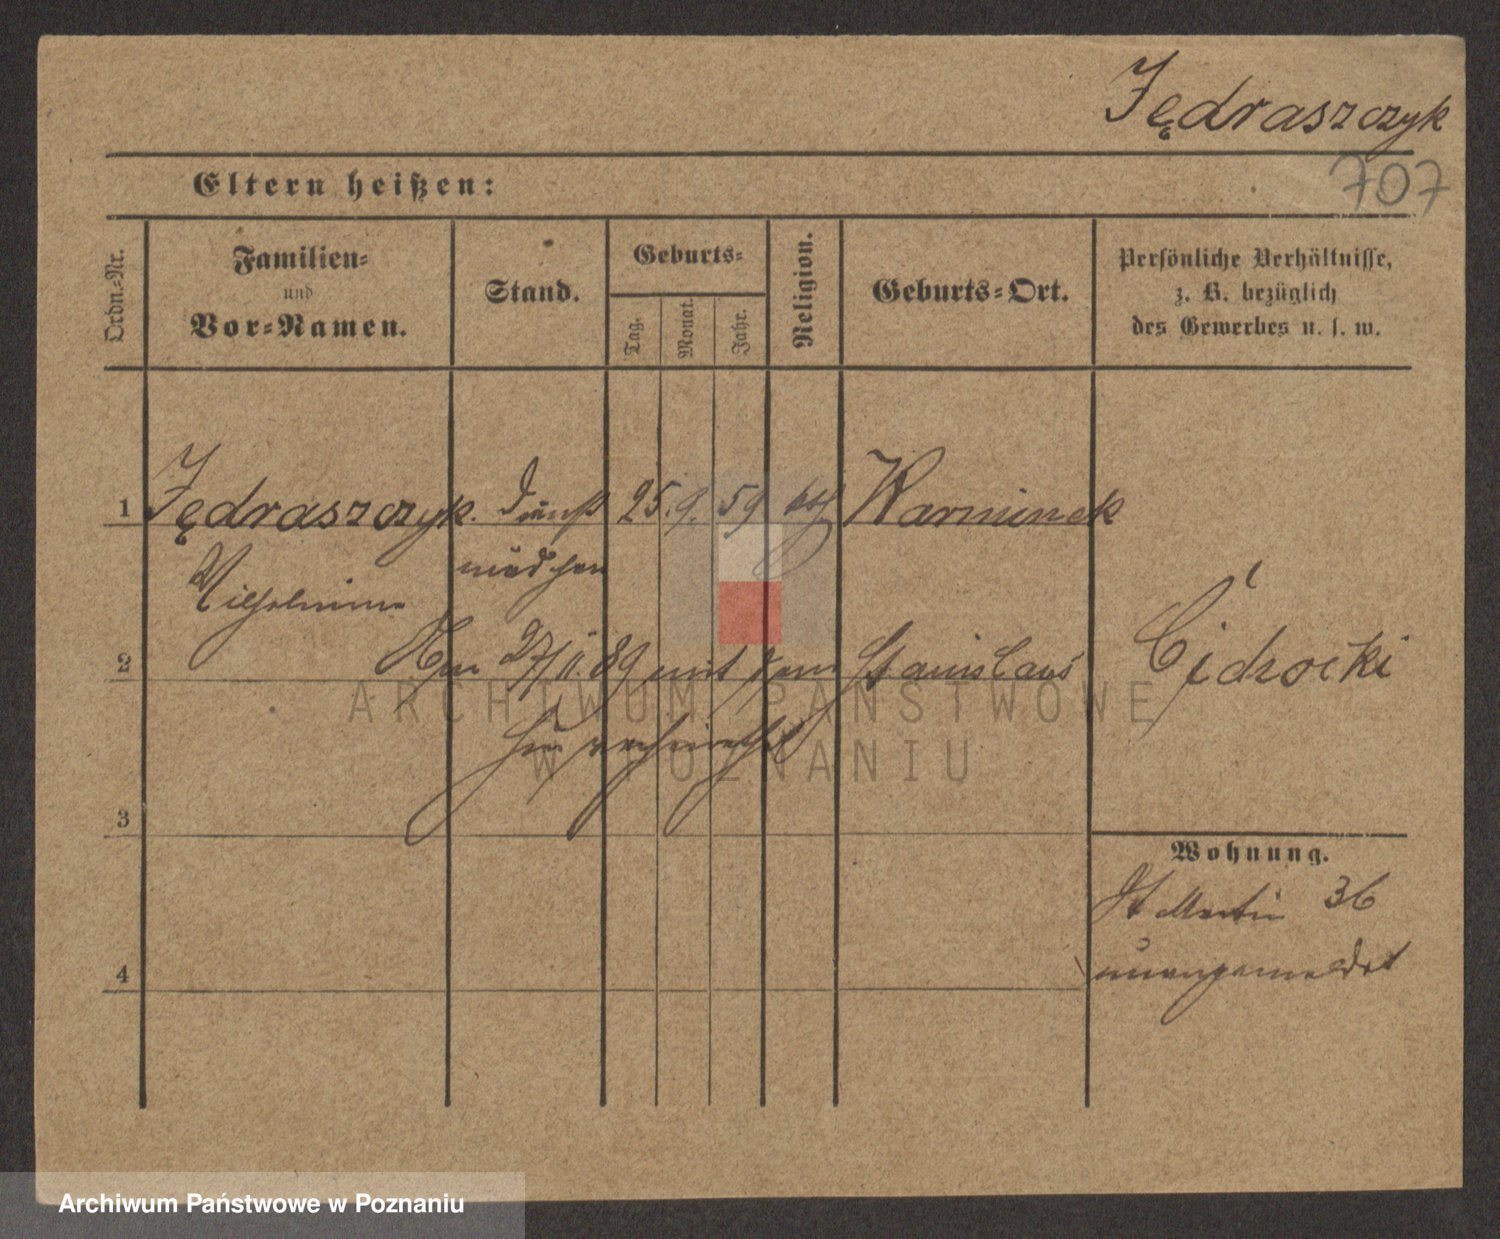 Jędraszczyk
707
Eltern heißen:
Ordn.-Nr.
Familien-
und
Vor-Namen.
Stand.
Geburts-
Tag.
Monat.
Jahr.
Religion.
Geburts-Ort.
Persönliche Verhältnisse,
z. B. bezüglich
des Gewerbes u. s. w.
1 Jędraszczyk. Dienst 25. 9. 59 kth Karminek
Wilhelmine mädchen
2 Am 27/11. 89 mit dem Stanislaus
hier verheirathet
3
4
Wohnung.
St Martin 36
unangemeldet
ARCHIWUM PAŃSTWOWE
W POZNANIU
Archiwum Państwowe w Poznaniu